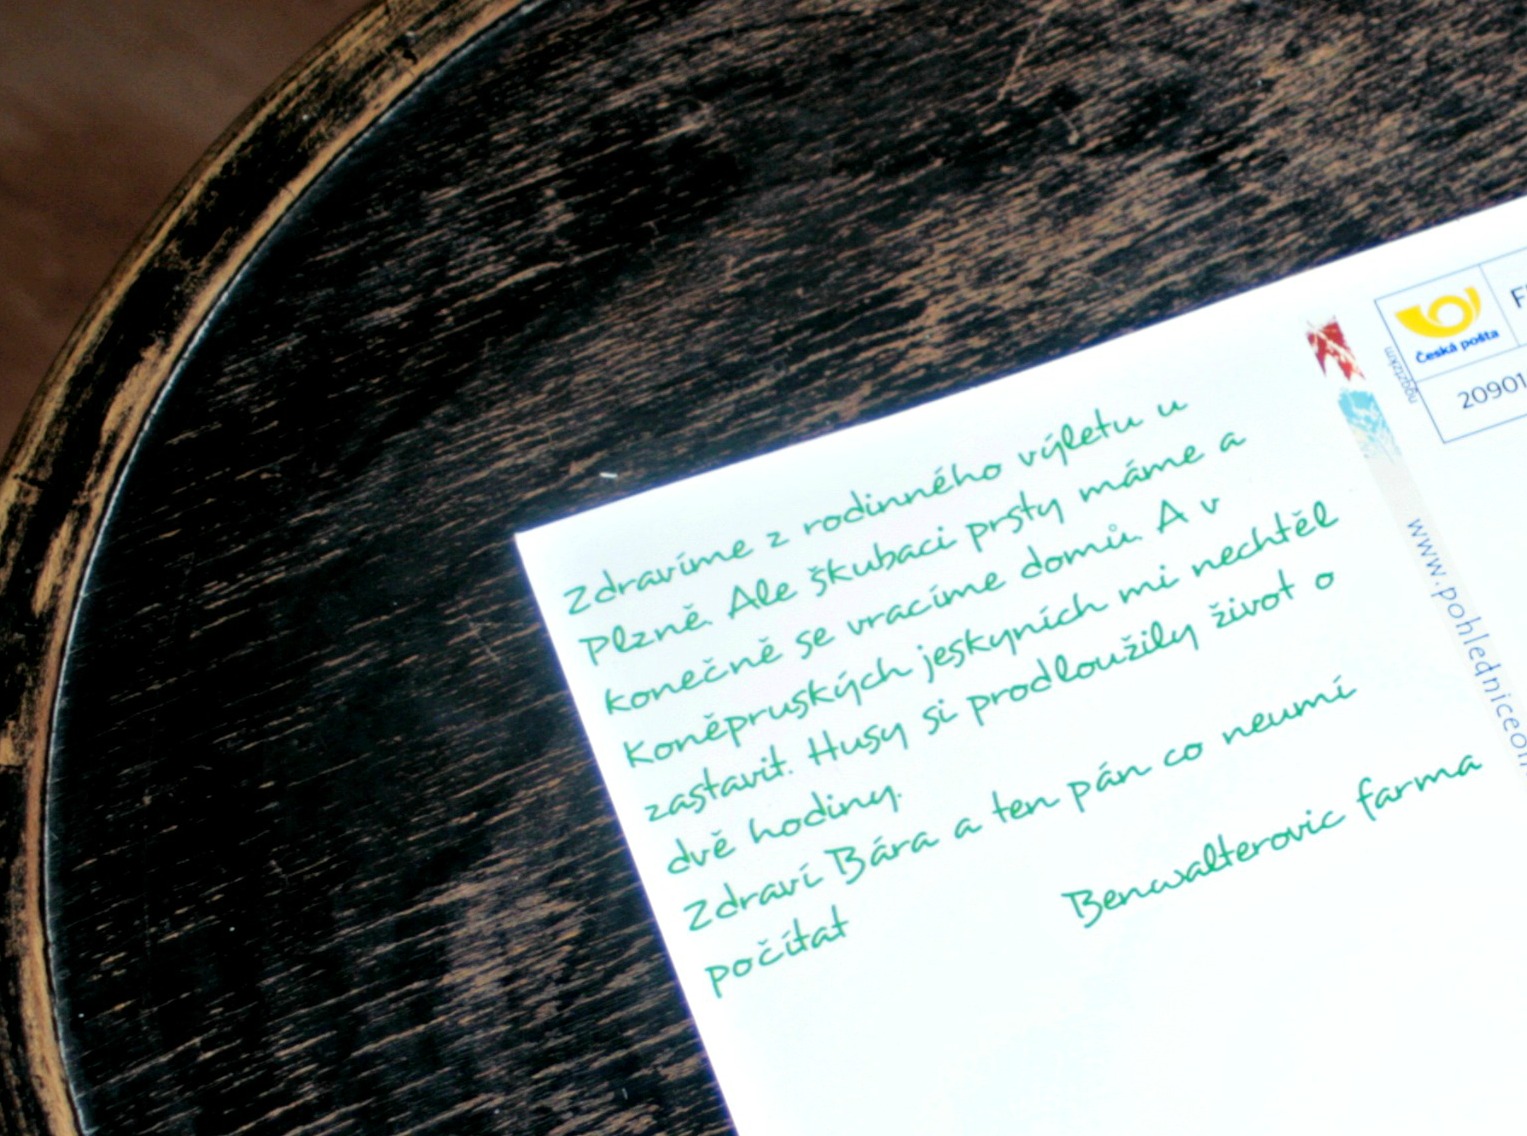 Zdravíme z rodinného výletu u
Plzně. Ale škubací prsty máme a
konečně se vracíme domů. A v
Koněpruských jeskyních mi nechtěl
zastavit. Husy si prodloužily život o
dvě hodiny.
Zdraví Bára a ten pán co neumí
počítat
Benwalterovic farma
Česká pošta
20901
nggtzkm
www.pohledniceon